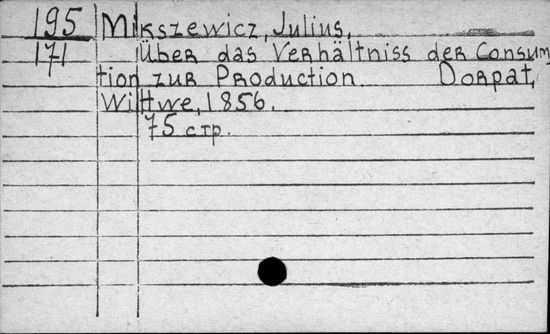 195 Mikszewicz, Julius,
171 Über das Verhältniss der Consum
tion zur Production. Dorpat,
Wittwe, 1856.
75 стр.